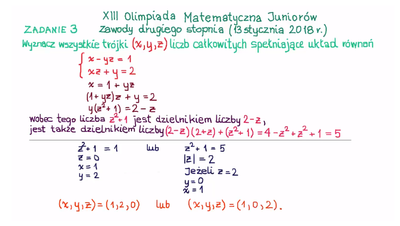 XIII Olimpiada Matematyczna Juniorów
ZADANIE 3 zawody drugiego stopnia (13 stycznia 2018 r.)
Wyznacz wszystkie trójki (x,y,z) liczb całkowitych spełniające układ równań
{ x - yz = 1
xz + y = 2
x = 1 + yz
(1+yz)z + y = 2
y(z²+1) = 2 - z
wobec tego liczba z²+1 jest dzielnikiem liczby 2-z,
jest także dzielnikiem liczby (2-z)(2+z)+(z²+1) = 4-z²+z²+1 = 5
z²+1 = 1 lub z²+1 = 5
z = 0 |z| = 2
x = 1 Jeżeli z = 2
y = 2 y = 0
x = 1
(x,y,z) = (1,2,0) lub (x,y,z) = (1,0,2).